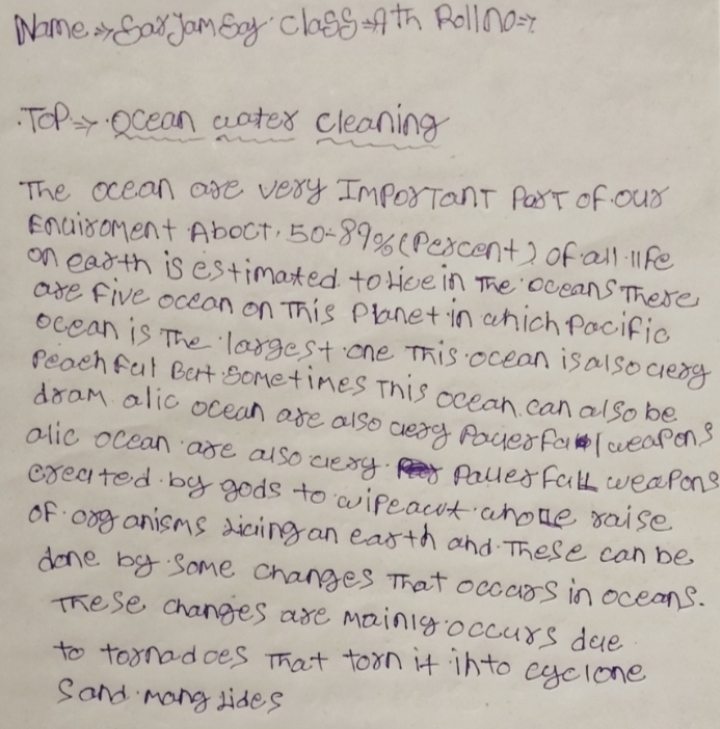 Name ⇒ SarJam Say class ⇒ 9th Roll no ⇒ 7
.Top ⇒ .Ocean water cleaning
The ocean are very IMPORTANT PaRT of our
Enuiroment Aboct. 50-89% (Percent) of all life
on earth is estimated to live in The oceans There
are five ocean on This Planet in which Pacific
ocean is The largest one This ocean is also very
Peachful But Sometimes This ocean can also be
dram alic ocean are also very Pouerful weapons
alic ocean are also very Pauerfull weapons
created by gods to wipeaut whole raise
of organisms living an earth and These can be
done by some changes That occurs in oceans.
These changes are mainly occurs due
to tornadoes That torn it into cyclone
Sand many tides